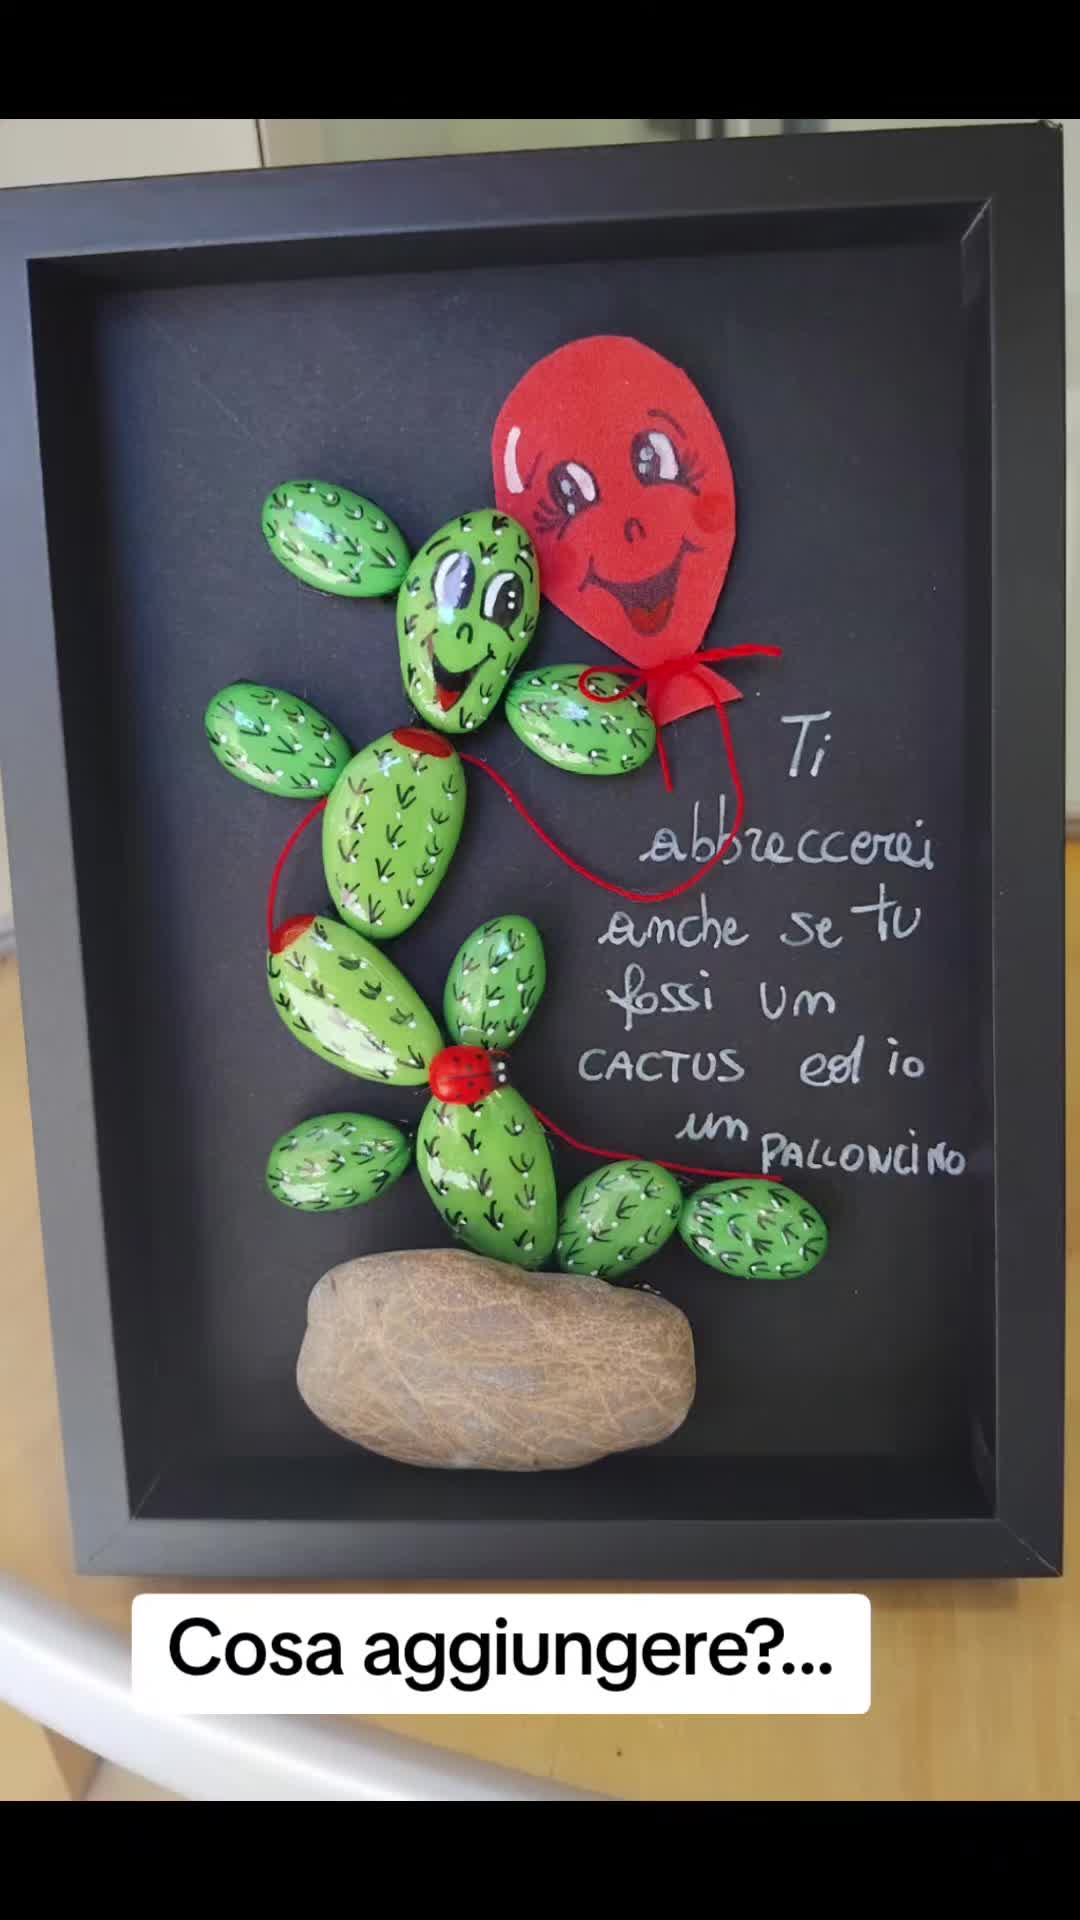 Ti
abbreccerei
anche se tu
fossi un
CACTUS ed io
un PALLONCINO
Cosa aggiungere?...